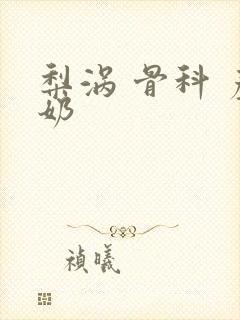 梨涡 骨科
奶
禎曦